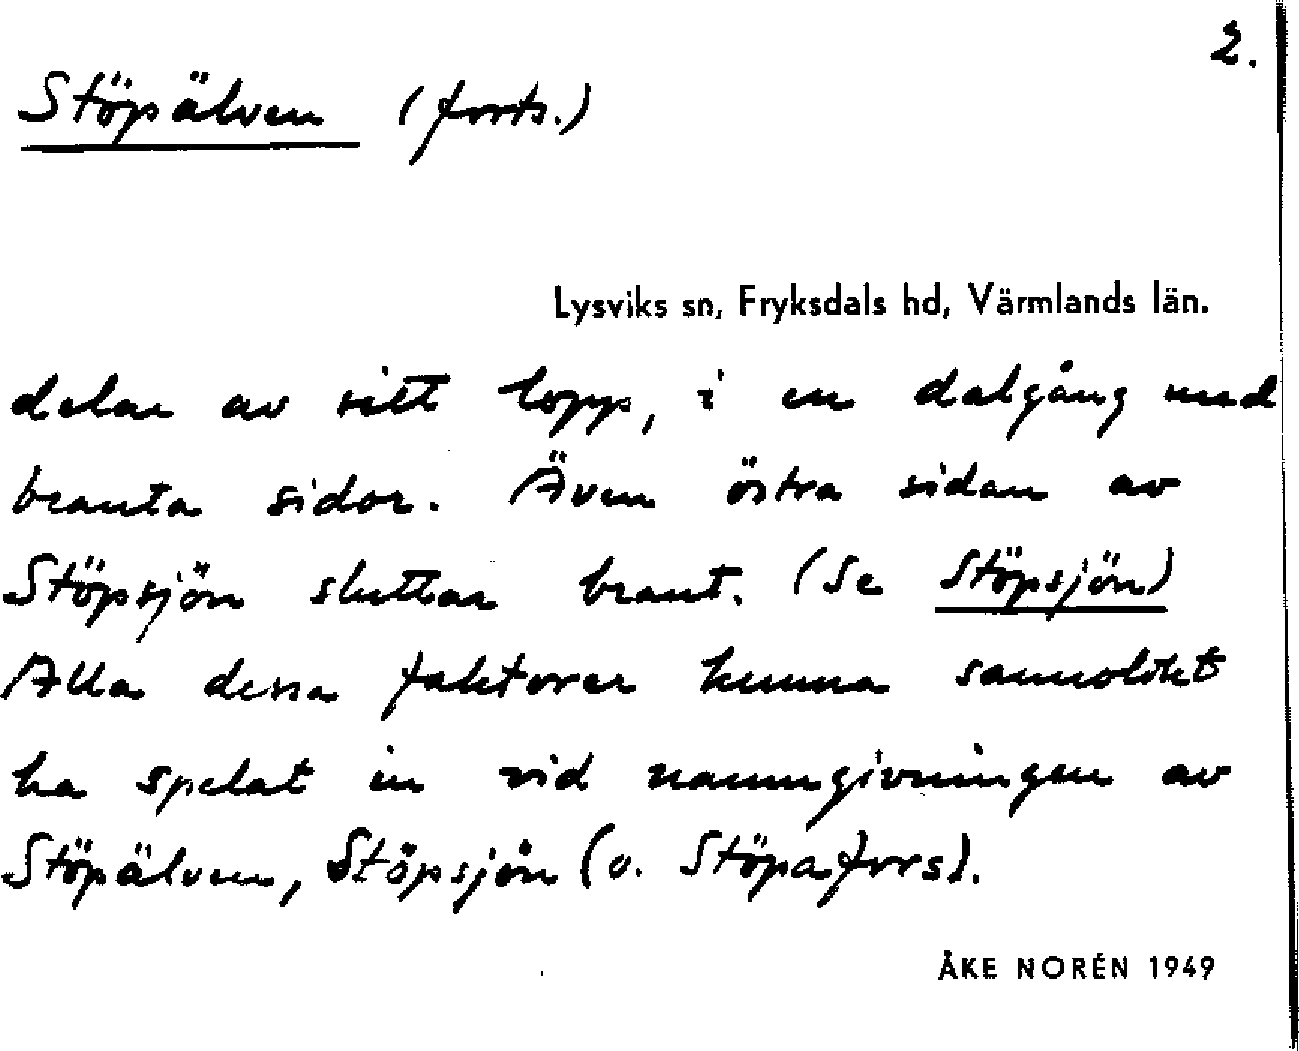 2.
Stöpälven (forts.)
Lysviks sn, Fryksdals hd, Värmlands län.
delar av sitt lopp, i en dalgång med
branta sidor. Även östra sidan av
Stöpsjön sluttar brant. (Se Stöpsjön)
Alla dessa faktorer kunna sannolikt
ha spelat in vid namngivningen av
Stöpälven, Stöpsjön (o. Stöpafors).
ÅKE NORÉN 1949